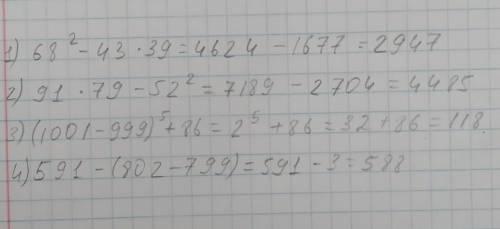 1) 68² - 43 · 39 = 4624 - 1677 = 2947
2) 91 · 79 - 52² = 7189 - 2704 = 4485
3) (1001 - 999)⁵ + 86 = 2⁵ + 86 = 32 + 86 = 118.
4) 591 - (802 - 799) = 591 - 3 = 588